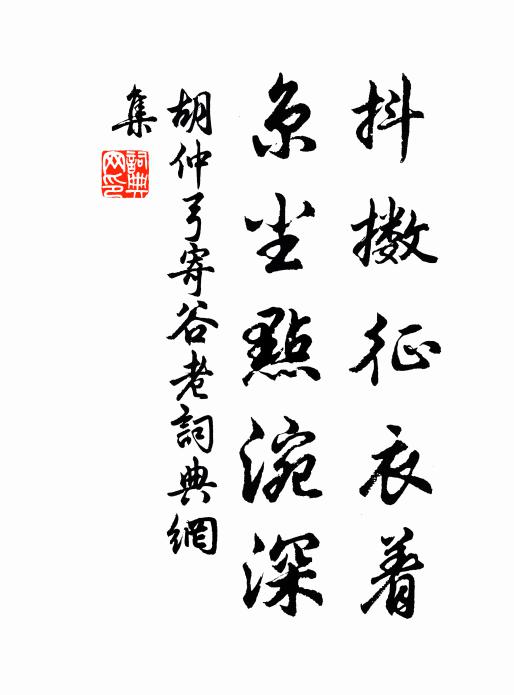 抖擻征衣着
京尘點涴深
胡仲弓寄谷老詞典網
集
詞典
网印